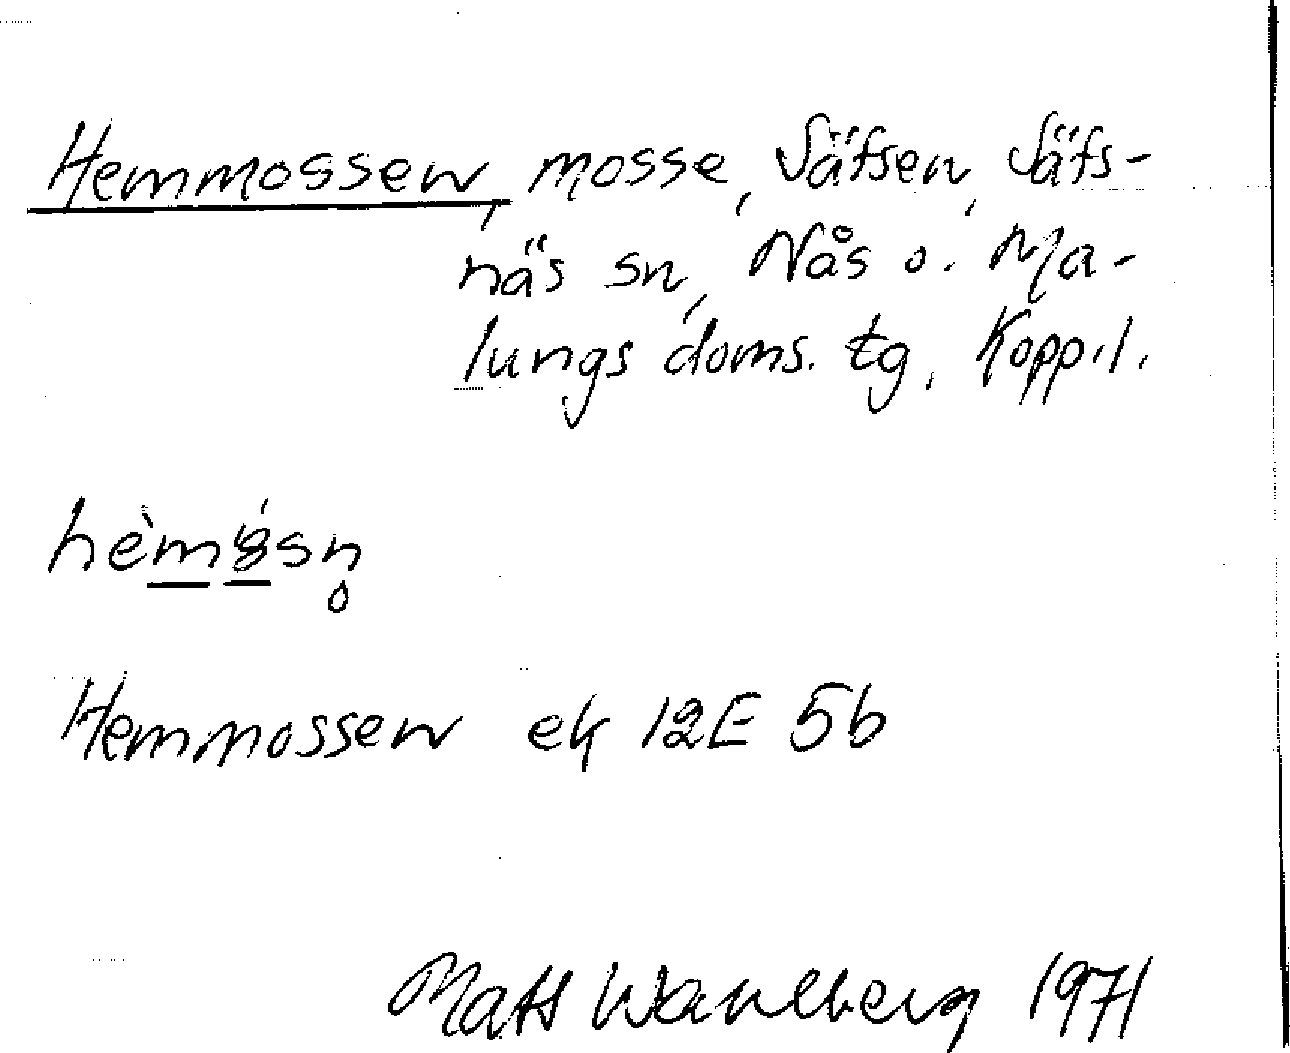 Hemmossen, mosse, Säfsen, Säfs-
näs sn, Nås o. Ma-
lungs doms. tg. Kopp. l.
Hemmossen ek 12E 5b
Mats Wahlberg 1971